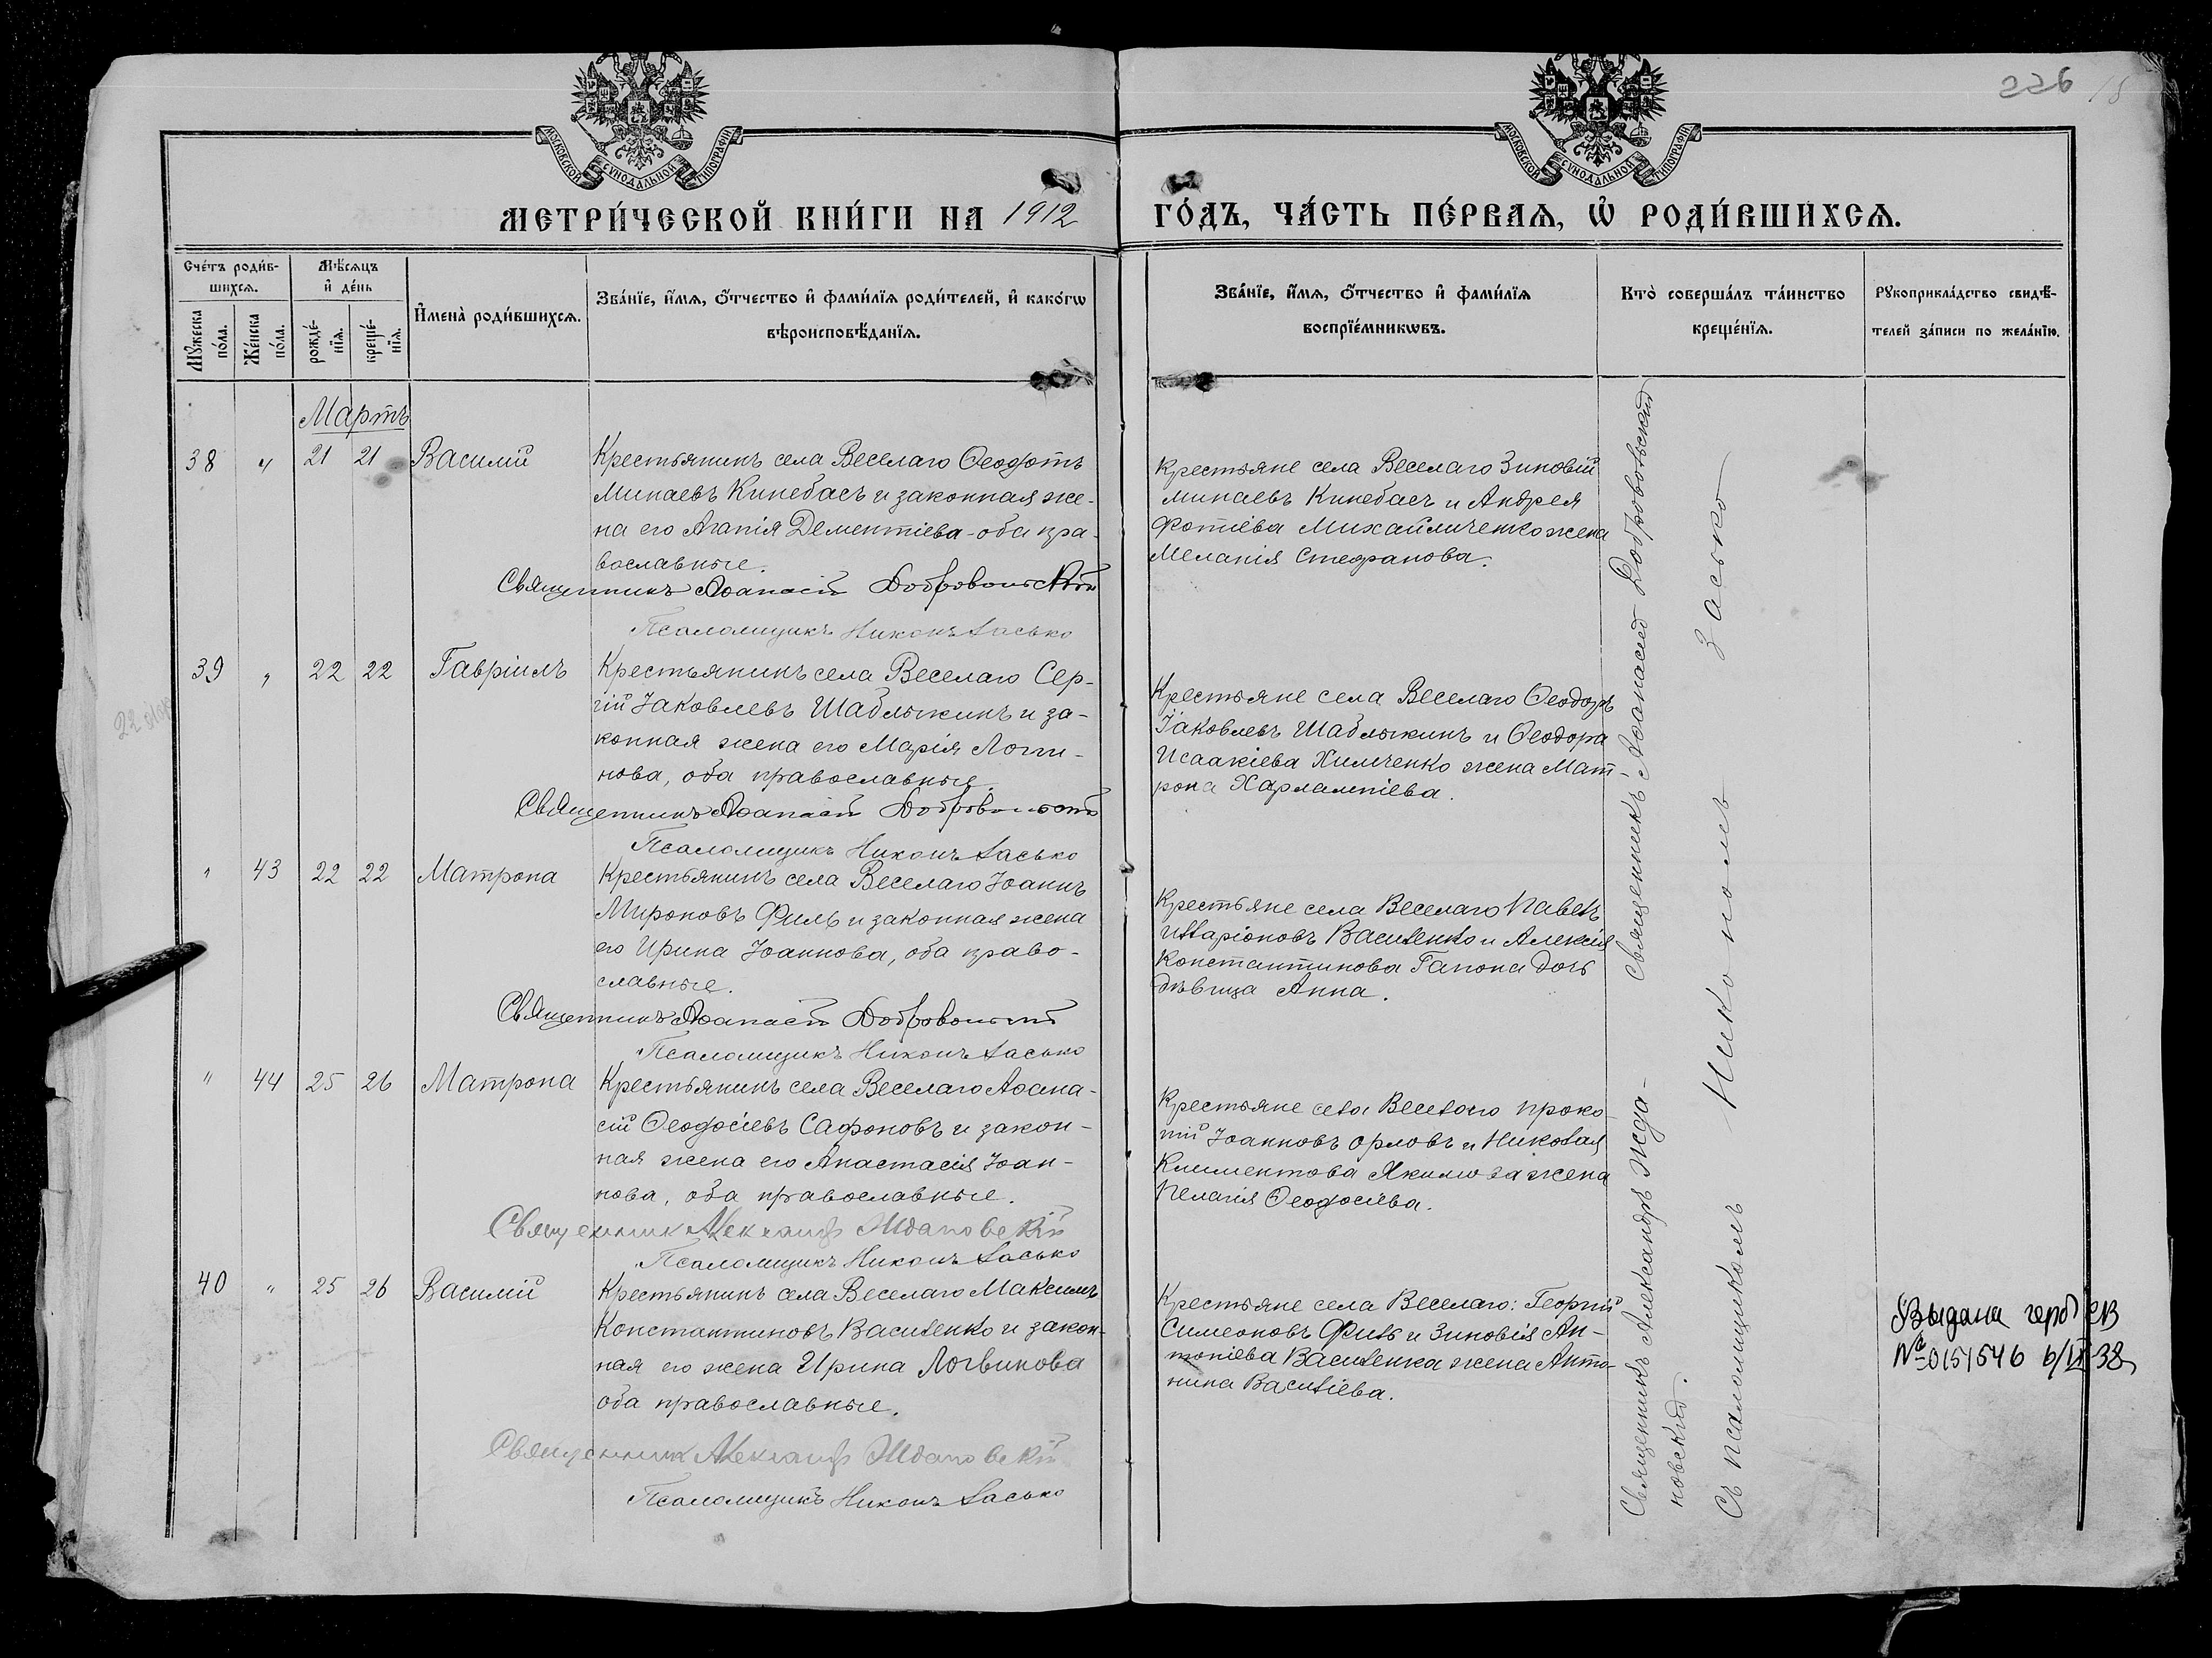 226
МОСКОВСКОЙ СУНОДАЛЬНОЙ ТИПОГРАФІИ
МОСКОВСКОЙ СУНОДАЛЬНОЙ ТИПОГРАФІИ
МЕТРИ́ЧЕСКОЙ КНИ́ГИ НА 1912 ГО́ДЪ, ЧА́СТЬ ПЕ́РВАѦ, Ѡ҆ РОДИ́ВШИХСѦ.
Сче́тъ роди́в-
шихсѧ.
Мꙋ́жеска по́ла.
Же́нска по́ла.
Мѣ́сѧцъ и҆ де́нь
рожде́-
нїѧ.
креще́-
нїѧ.
И҆мена̀ роди́вшихсѧ.
Зва́нїе, и҆́мѧ, ѻ҆́тчество и҆ фами́лїѧ роди́телей, и҆ како́гѡ
вѣроисповѣ́данїѧ.
Зва́нїе, и҆́мѧ, ѻ҆́тчество и҆ фами́лїѧ
воспрїе́мникѡвъ.
Кто̀ соверша́лъ та́инство
креще́нїѧ.
Рꙋкоприкла́дство свидѣ́-
телей за́писи по жела́нїю.
Мартъ
38 " 21 21 Василій
Крестьянинъ села Веселаго Ѳеодотъ
Минаевъ Кинебасъ и законная же-
на его Агапія Дементіева - оба пра-
вославные.
Священникъ Аѳанасій Добровольскій
Псаломщикъ Никонъ Засько
Крестьяне села Веселаго Зиновій
Минаевъ Кинебасъ и Андрея
Фотіева Михайличенко жена
Меланія Стефанова.
39 " 22 22 Гавріилъ
Крестьянинъ села Веселаго Сер-
гій Іаковлевъ Шаблыкинъ и за-
конная жена его Марія Логи-
нова, оба православные.
Священникъ Аѳанасій Добровольскій
Псаломщикъ Никонъ Засько
Крестьяне села Веселаго Ѳеодоръ
Іаковлевъ Шаблыкинъ и Ѳеодора
Исаакіева Химченко жена Мат-
рона Харлампіева.
" 43 22 22 Матрона
Крестьянинъ села Веселаго Іоаннъ
Мироновъ Филь и законная жена
его Ирина Іоаннова, оба право-
славные.
Священникъ Аѳанасій Добровольскій
Псаломщикъ Никонъ Засько
Крестьяне села Веселаго Павелъ
Иларіоновъ Василенко и Алексія
Константинова Гапона дочь
дѣвица Анна.
" 44 25 26 Матрона
Крестьянинъ села Веселаго Аѳана-
сій Ѳеодосіевъ Сафоновъ и закон-
ная жена его Анастасія Іоан-
нова, оба православные.
Священник Александр Ждановскій
Псаломщикъ Никонъ Засько
Крестьяне села Веселаго Проко-
пій Іоанновъ Орловъ и Николая
Климентова Якимова жена
Пелагія Ѳеодосіева.
40 " 25 26 Василій
Крестьянинъ села Веселаго Максимъ
Константиновъ Василенко и закон-
ная его жена Ирина Логвинова
оба православные.
Священник Александр Ждановскій
Псаломщикъ Никонъ Засько
Крестьяне села Веселаго: Георгій
Симеоновъ Филь и Зиновія Ан-
тоніева Василенка жена Анто-
нина Василіева.
Священникъ Аѳанасій Добровольскій
Священникъ Александръ Жда-
новскій.
Съ псаломщикомъ Никономъ Засько
Выдана герб СВ
№ 0151546 6/VI 38